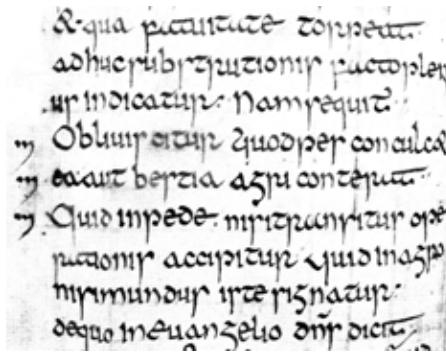 & qua fatuitate torpeat
adhuc substrutionis factor ples
us indicatur· Nam sequit̃
Obliuiscitur quod pes conculc&
ea aut bestia agri conterat·
Quid in pede nisi transitus ope
rationis accipitur quid in agro
nisi mundus iste signatur·
de quo in euangelio dñs dicit